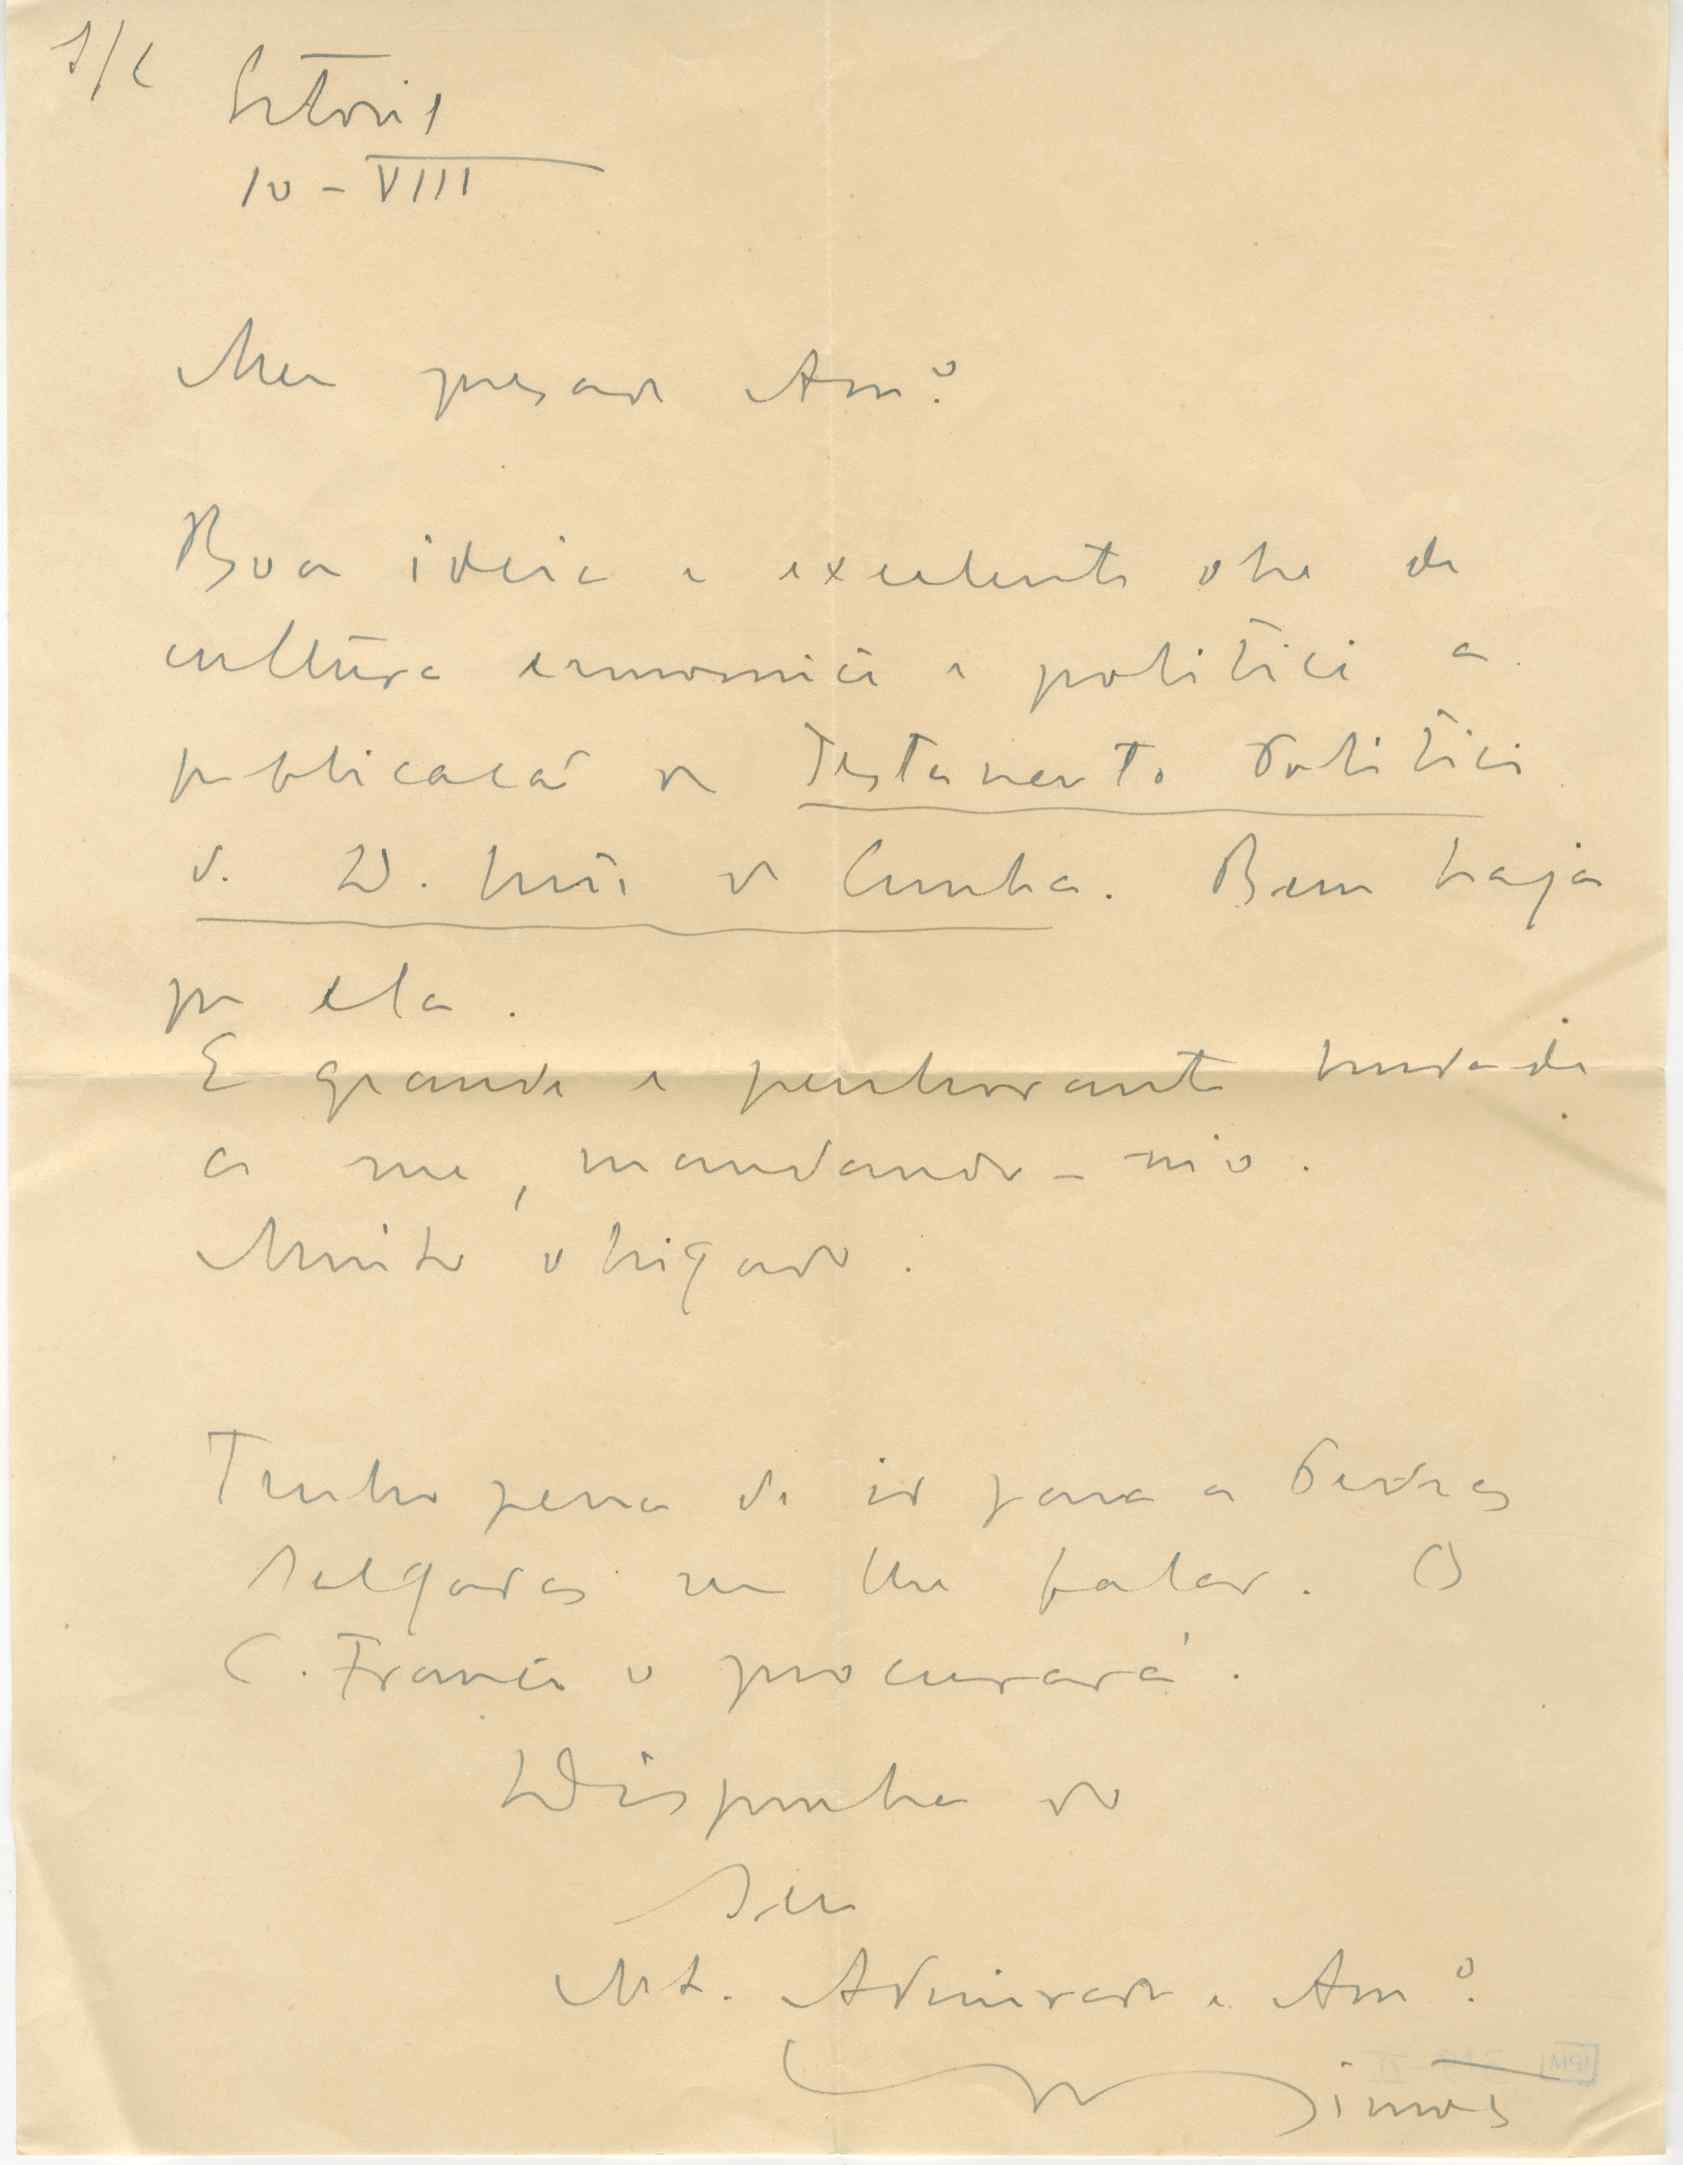 S/C Estoril
10-VIII
Meu presado Amº.
Boa ideia e excelente obra de
cultura economica e politica a
publicacão do Testamento Politico
de D. Luis da Cunha. Bem haja
por ela.
E grande e penhorante bondade
a sua, mandando-mo.
Muito obrigado.
Tenho pena de ir para as Pedras
Salgadas sem lhe falar. O
C. França o procurará.
Disponha do
Seu
Mt. Admirador e Amº.
Simões